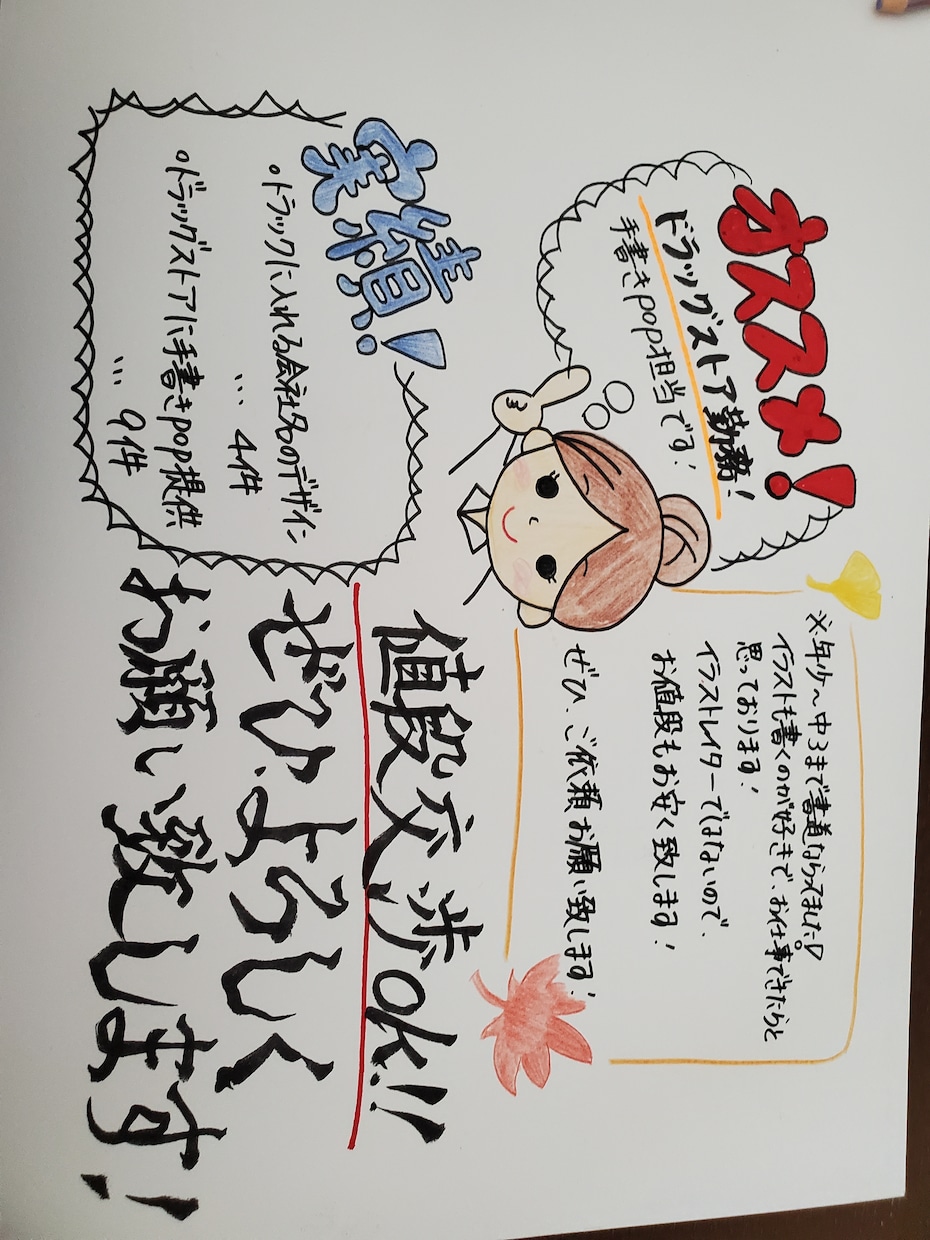 オススメ!
ドラッグストア勤務!
手書きpop担当です!
※年少〜中3まで書道ならってました♡
イラストも書くのが好きで、お仕事できたらと
思っております!
イラストレイターではないので、
お値段もお安く致します!
ぜひ、ご依頼お願い致します!
実績!
◦トラックに入れる会社名のデザイン
… 4件
◦ドラッグストアに手書きpop提供
… 9件
値段交渉OK!!
ぜひ、よろしく
お願い致します!